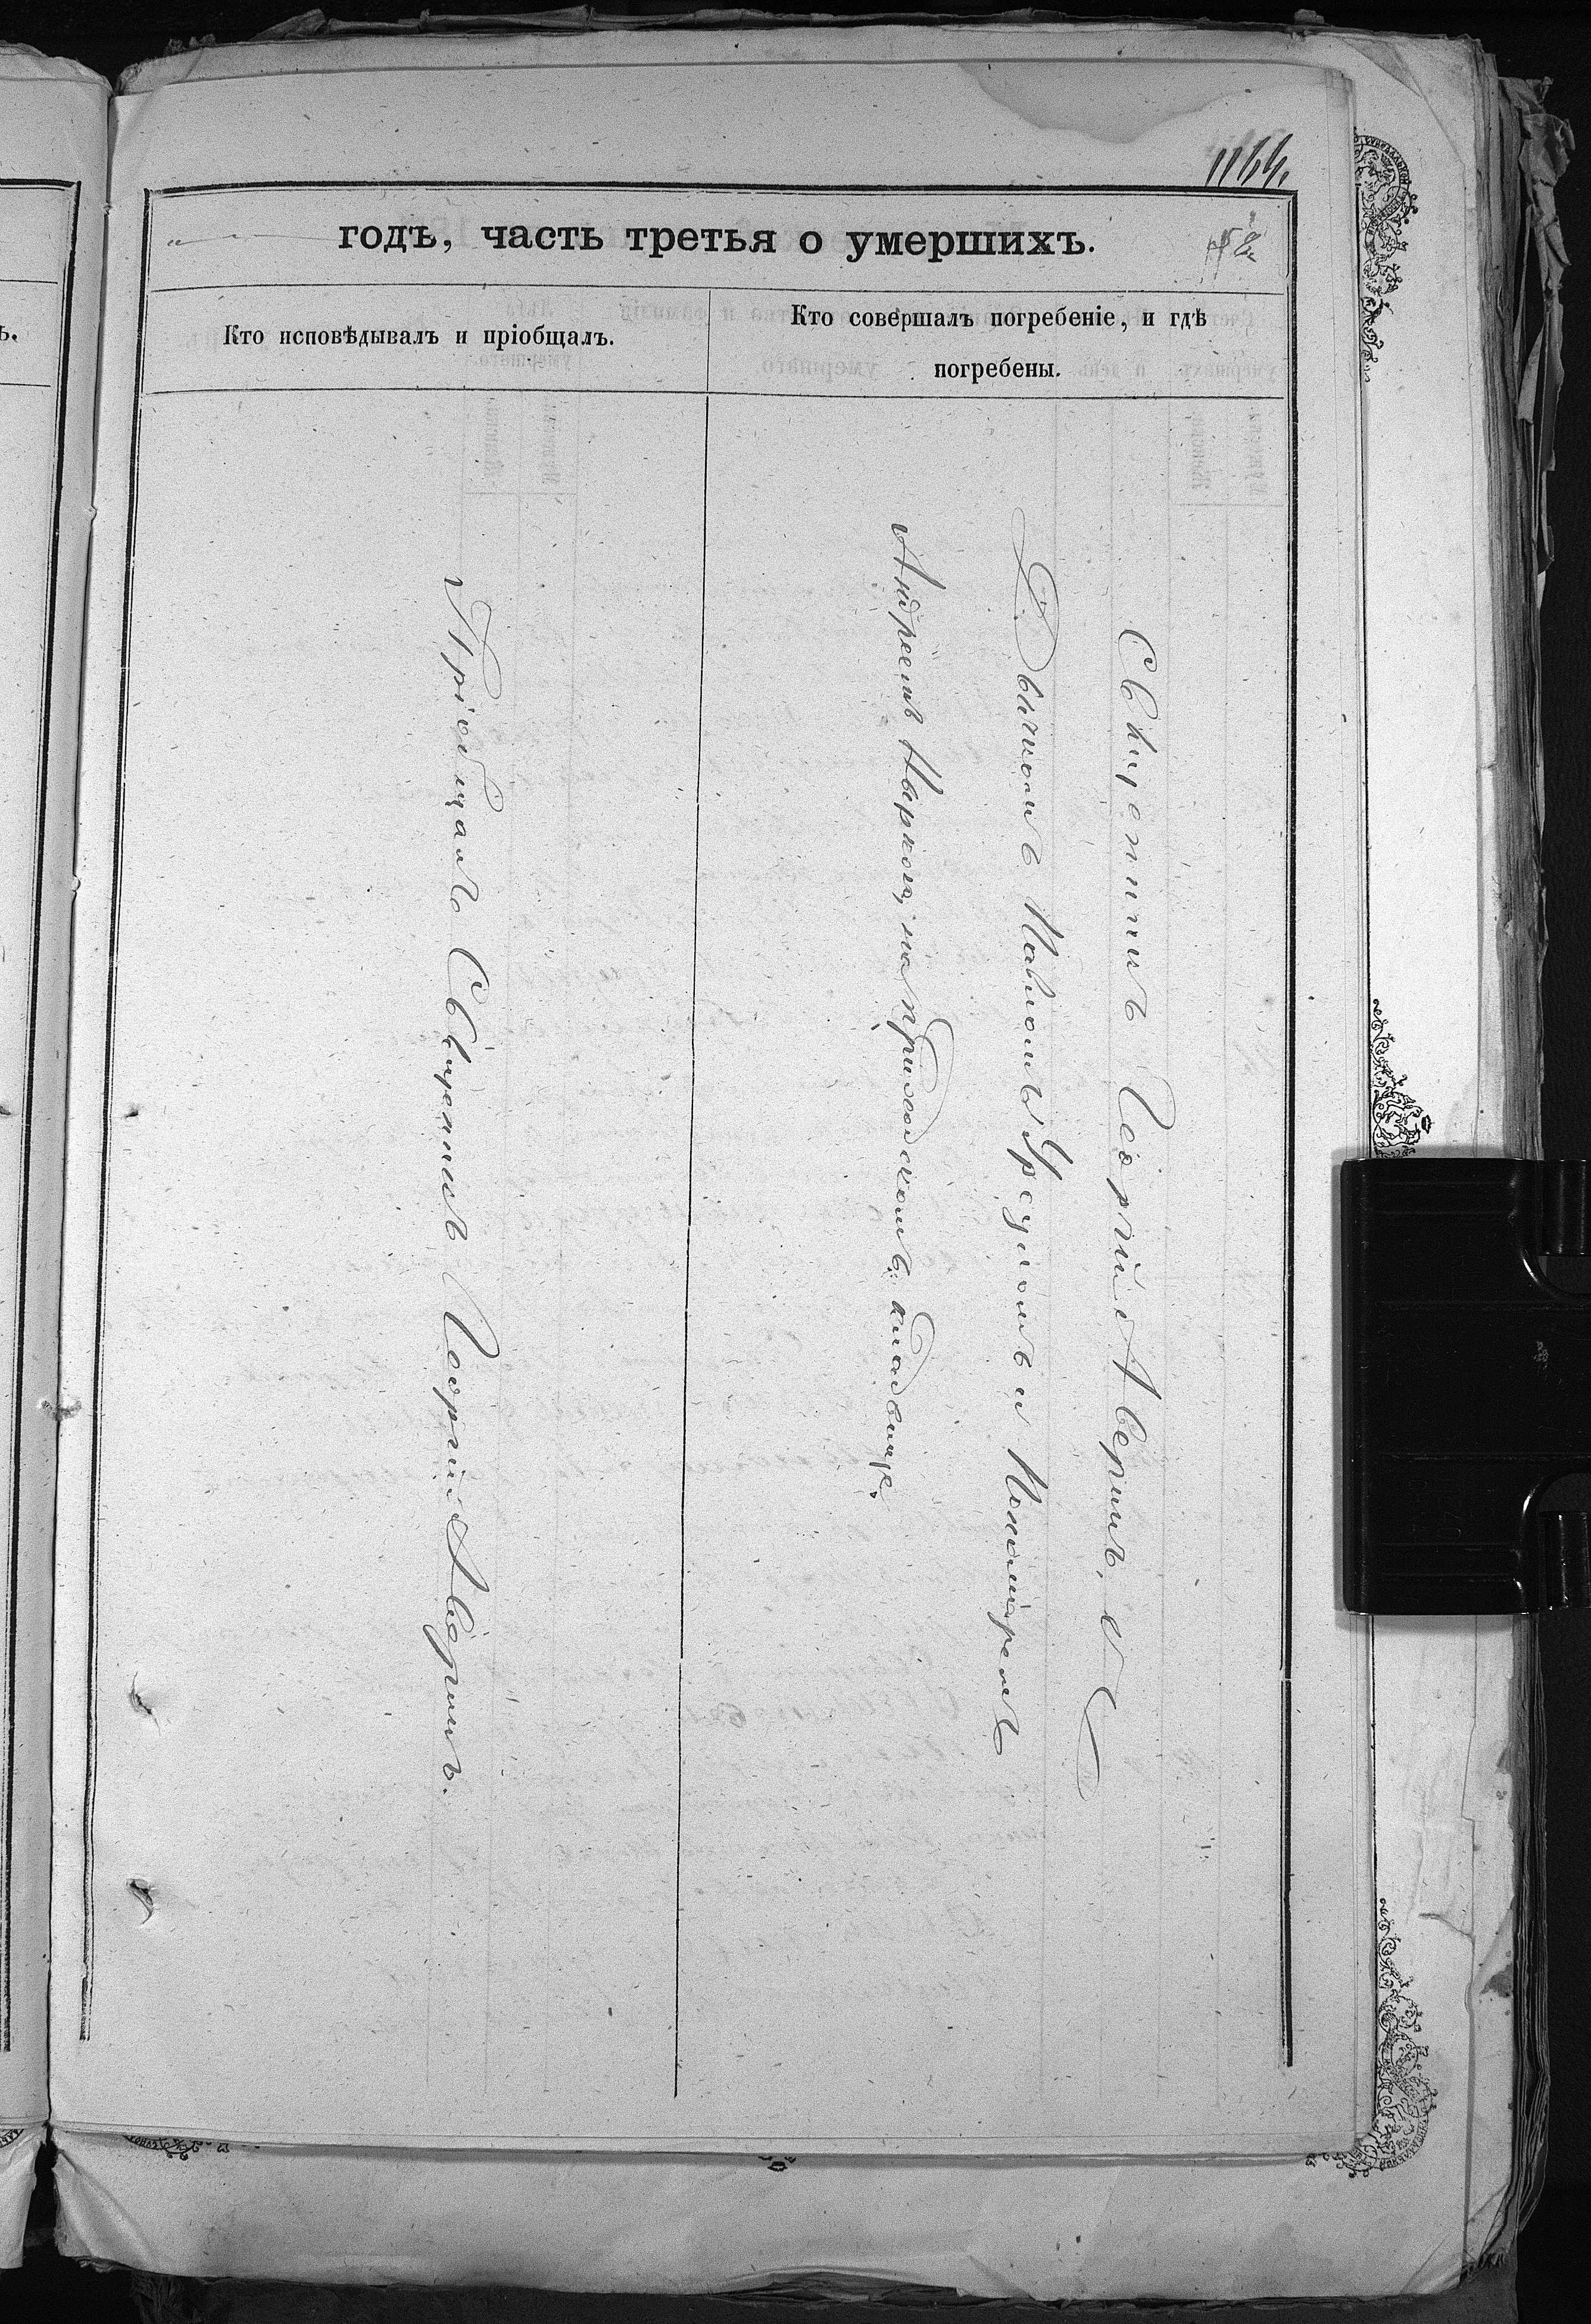 1164.
годъ, часть третья о умершихъ.
Кто исповѣдывалъ и пріобщалъ.
Кто совершалъ погребеніе, и гдѣ
погребены.
Пріобщалъ Священникъ Георгій Аверинъ.
Священникъ Георгій Аверинъ, съ
Дьячкомъ Павломъ и Пономаремъ
Андреемъ на приходскомъ кладбищѣ.